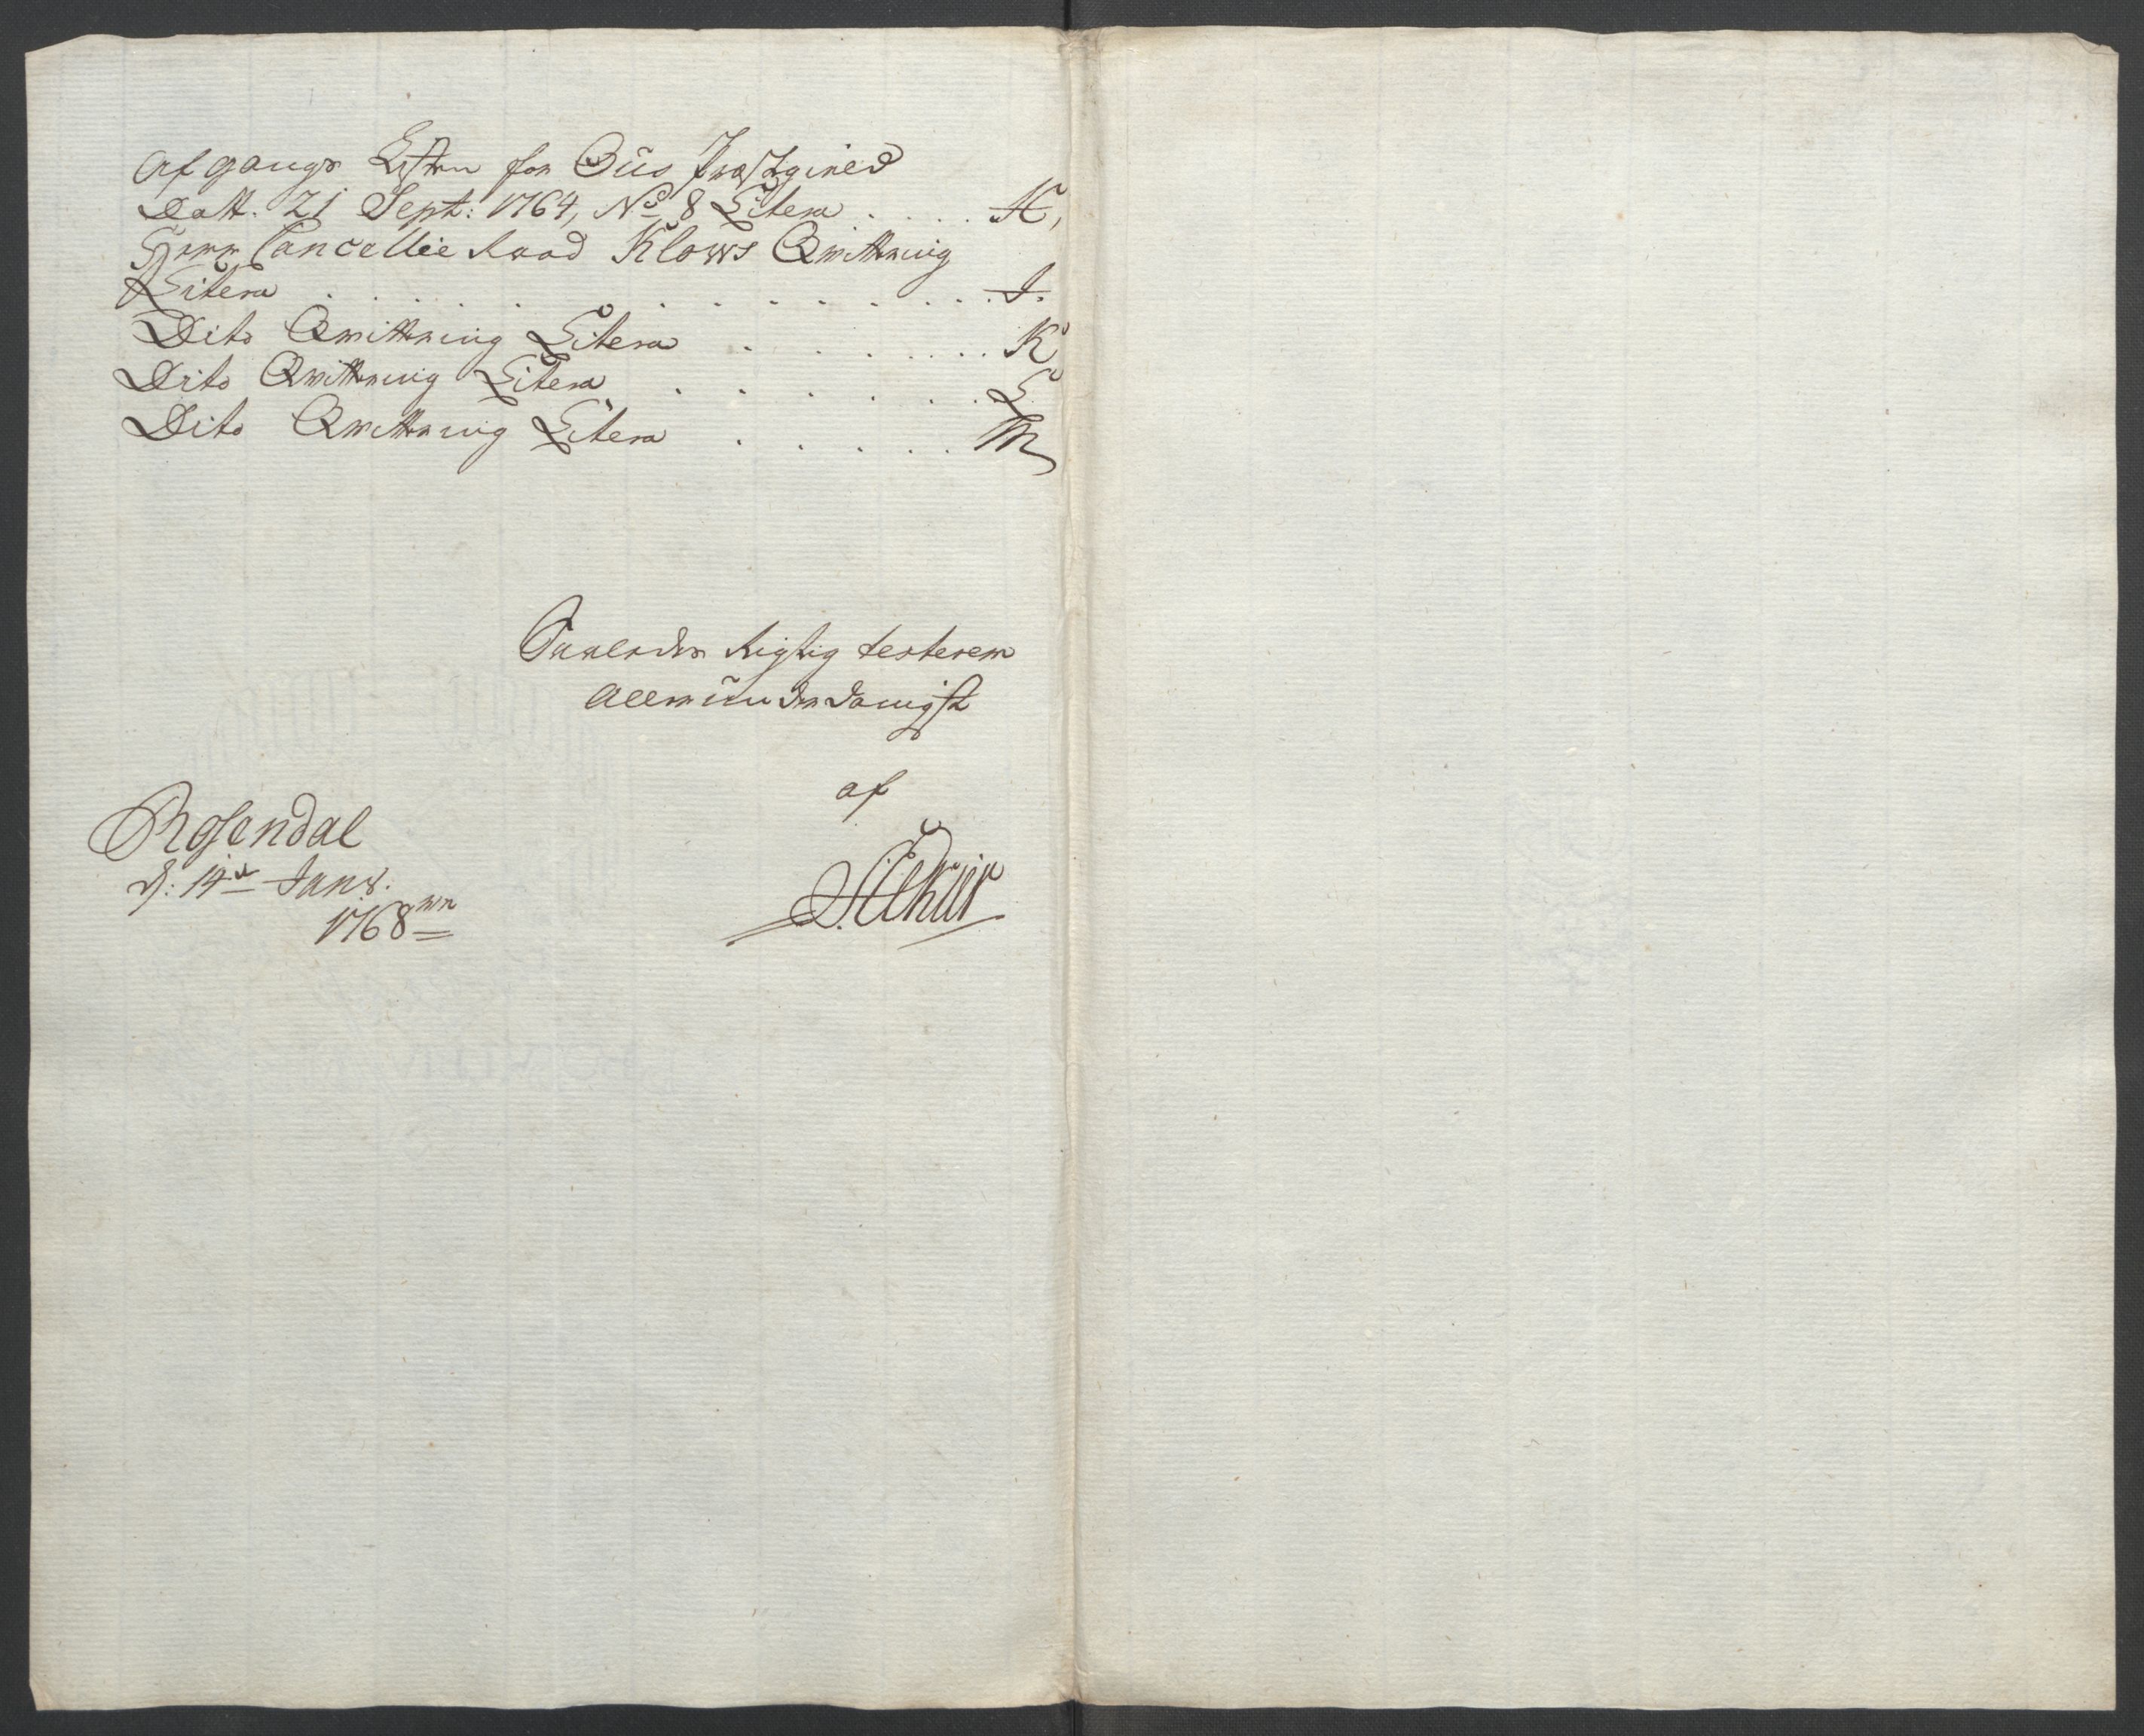 Afgangs Listen for Øus Præstegield
Datt. 21 Sept: 1764, No 8 Litera . . . . H,
Herr Cancellie Raad Klows Qvittering
Litera . . . . . . . . . . . . J.
Dito Qvittering Litera . . . . . . . K
Dito Qvittering Litera . . . . . . . L
Dito Qvittering Litera . . . . . M
Saaledes Rigtig testerer
Allerunderdanigst
af
Rosendal
d: 14de Janv.
1768